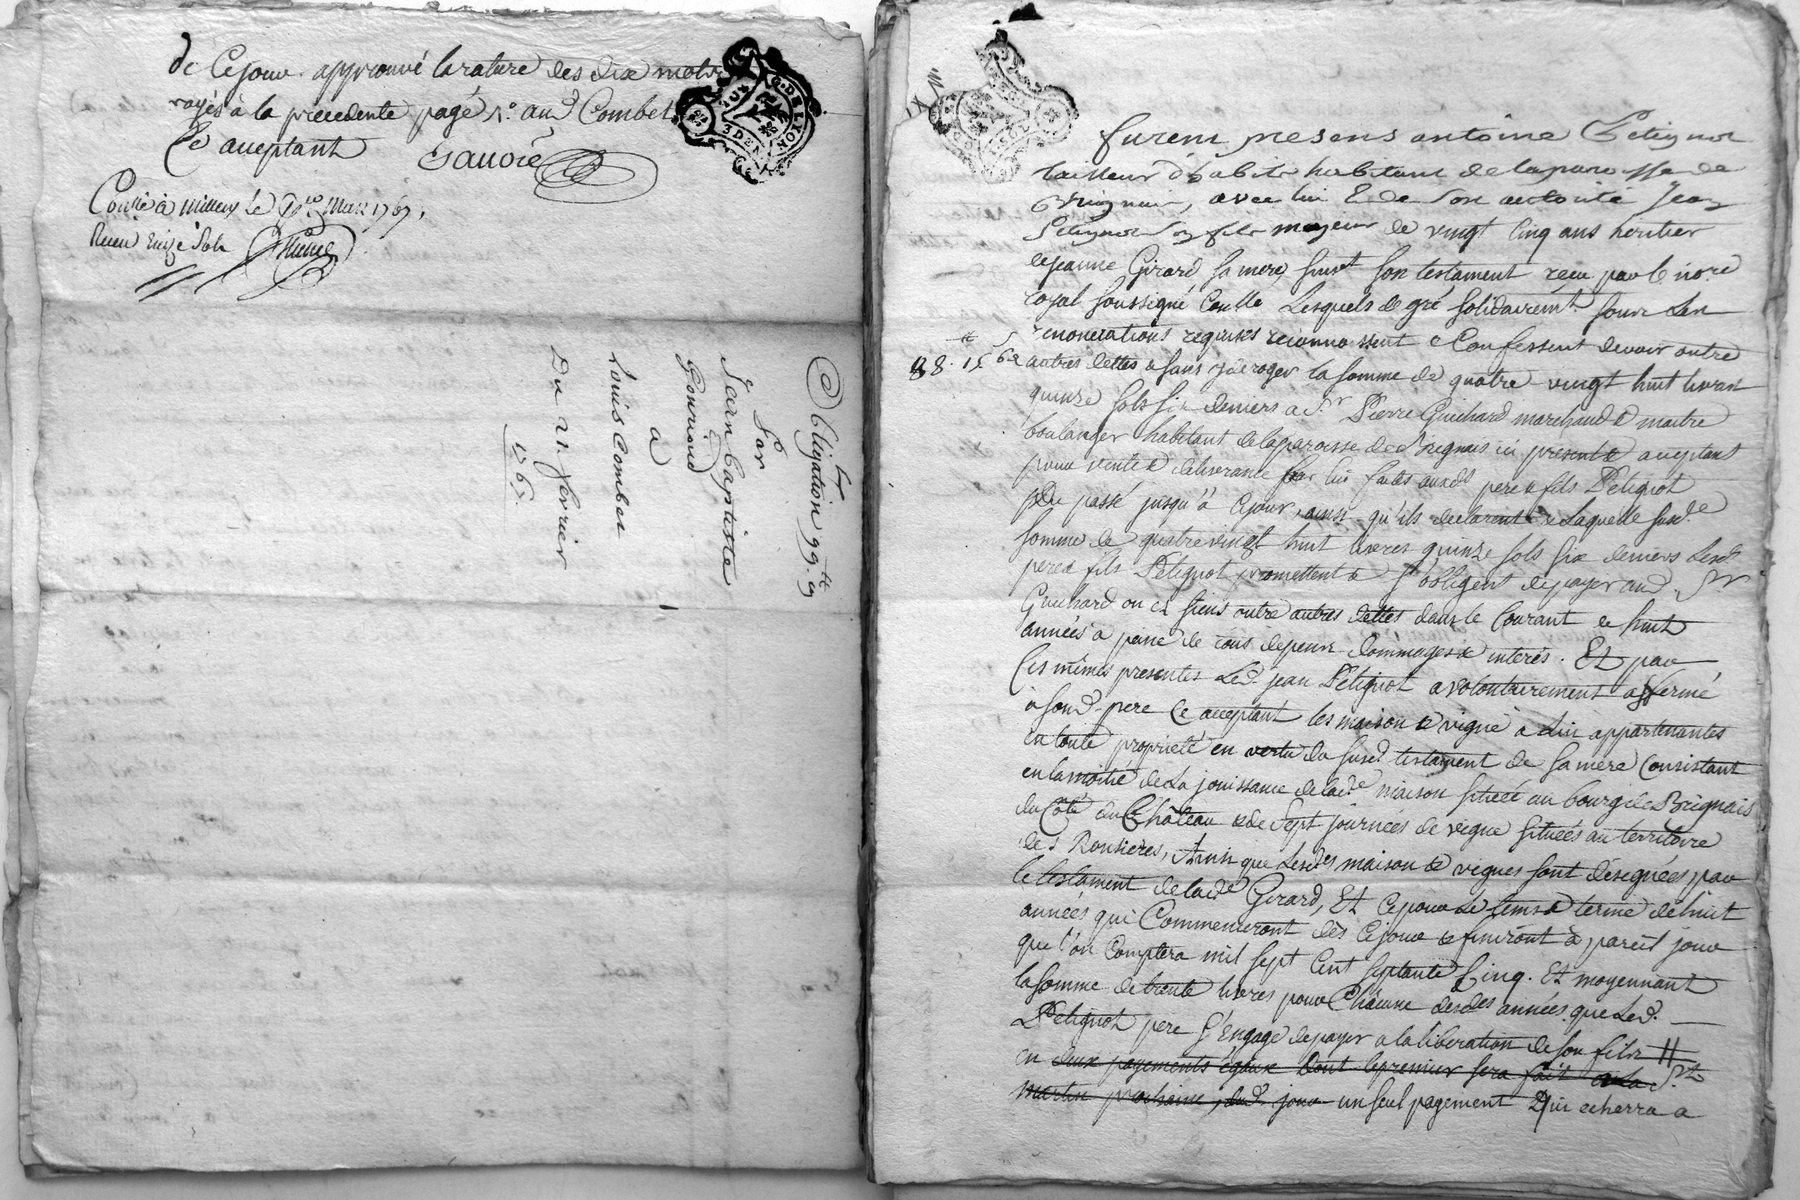 de Cejour. approuvé la rature des dix mots
rayés à la precedente page /. aud Combet
Ce acceptant Savoié
Conllé à Millery le mars 1767,
Recu Seize Sols
3 DEN
Obligation 99
Par
Jean baptiste
Gouriond
a
Louis Combet
Du 21 fevrier
1767
furent presens antoine Petignot
tailleur d'habits habitant de la paroisse de
Brignais, avec lui & de son autorité Jean
Petignot son fils majeur de vingt cinq ans heritier
de jeanne Girard sa mere, suivt son testament reçu par le nore
royal soussigné Lesquels de gré solidairemt sous les
renonciations requises reconnoissent & Confessent devoir outre
88. 15 6 autres dettes & sans y deroger la somme de quatre vingt huit livres
quinze sols six deniers a Sr Pierre Guichard marchand & maitre
boulanger habitant de la paroisse de Brignais ici present & acceptant
pour vente & delivrance par lui faites auxds pere & fils Petignot
du passé jusqu'à Cejour, ainsi qu'ils declarent Laquelle susde
somme de quatre vingt huit livres quinze sols six deniers lesds
pere & fils Petignot promettent & s'obligent de payer aud. Sr
Guichard ou es siens outre autres dettes dans le Courant de huit
années a peine de tous depens dommages & interês. Et par
Ces mêmes presentes Led. jean Petignot a volontairement affermé
à sond. pere Ce acceptant les maison & vigne à Lui appartenantes
en toute proprieté en vertu du susd. testament de sa mere Consistant
en la moitié de La jouissance de lade maison située au bourg de Brignais
du Côté du Château & de sept journées de vigne situées au territoire
des Ronzieres, Ainsi que lesdes maison & vignes sont désignées par
le testament de lade Girard, Et Ce pour Le tems & terme de huit
années qui Commenceront dès Cejour & finiront à pareil jour
que l'on Comptera mil sept Cent septante Cinq. Et moyennant
la somme de trente livres pour Chacune desdes années que Led.
Petignot pere s'Engage de payer a la liberation de son fils
en deux payements égaux dont le premier sera fait a la St
martin prochaine, dud. jour un seul payement Qui echerra a